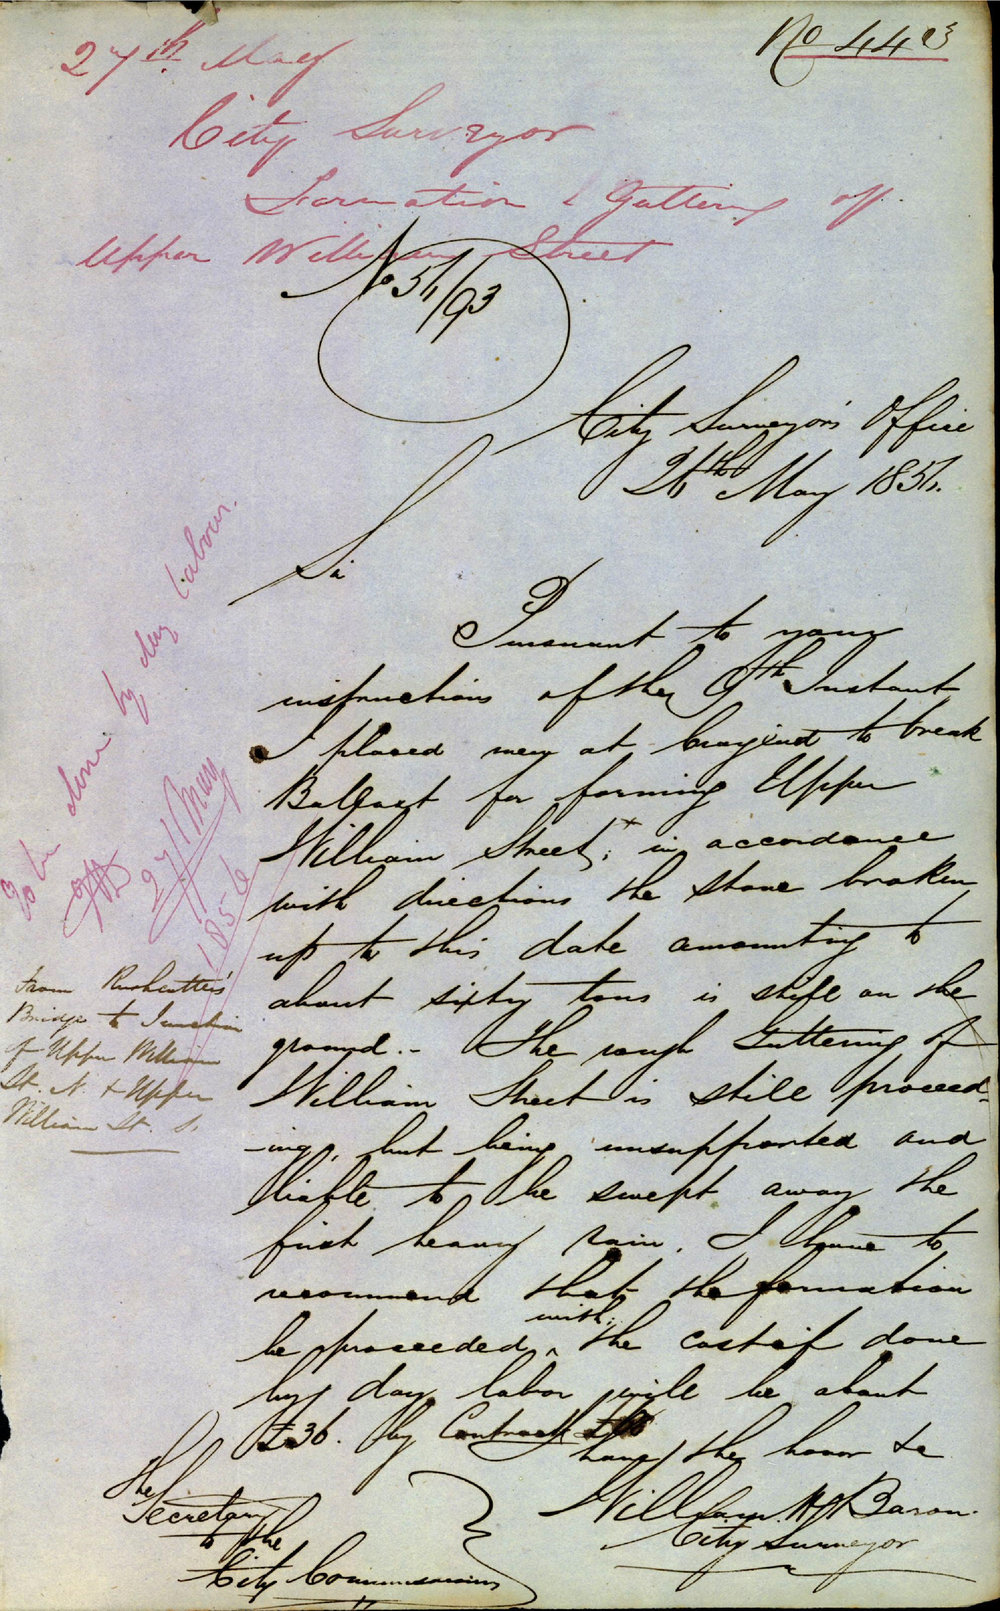 No 443
27th May
City Surveyor
Formation & Guttering of
Upper William Street
No 54/93
City Surveyor's Office
26th May 1854.
Sir
Pursuant to your
instructions of the 9th Instant
I placed men at to break
Ballast for forming Upper
William Street,* in accordance
with directions the stone broken
up to this date amounting to
about sixty tons is still on the
ground.- The rough Guttering of
William Street is still proceed-
ing, but being unsupported and
liable to be swept away the
first heavy rain. I have to
recommend that the formation
be proceeded ^ with; the cost if done
by day labor will be about
£36. By Contract
I have the honor &c
William H Baron.
City Surveyor
The
Secretary
to the
City Commissioners
To be done by day labour.
27/May
185
From Rushcutter's
Bridge to Junction
of Upper William
St. N. & Upper
William St. S.